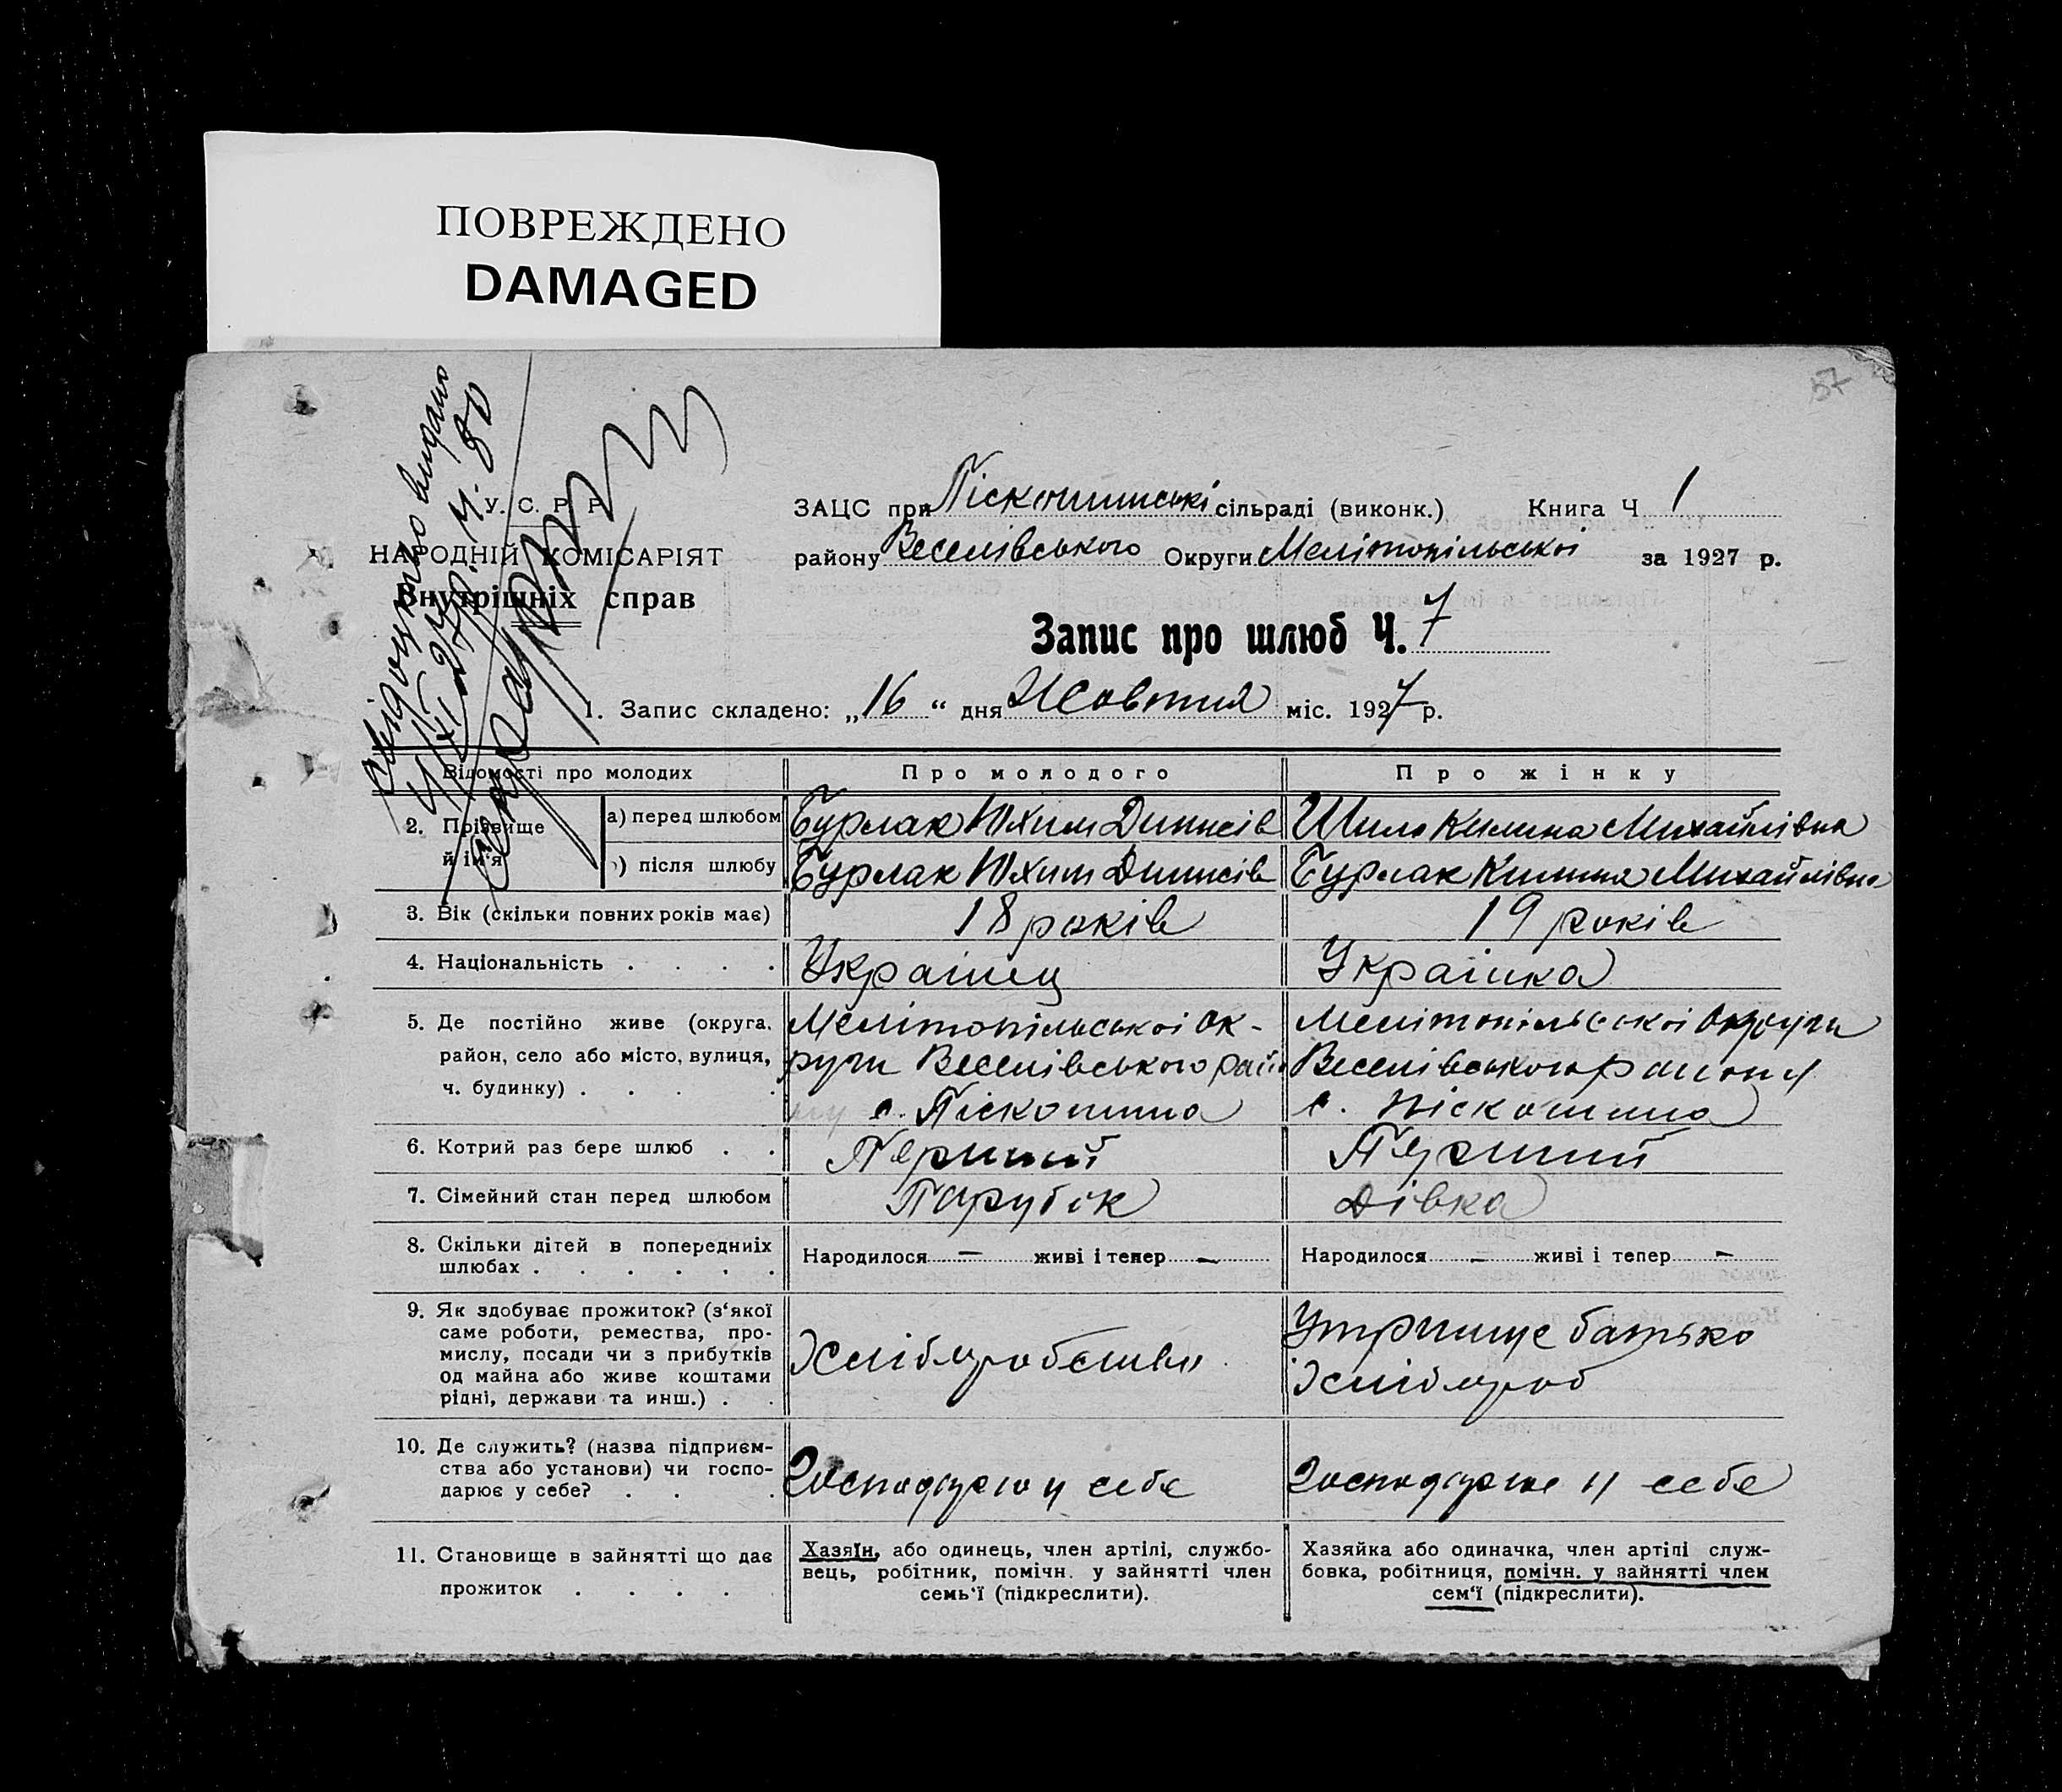 ПОВРЕЖДЕНО
DAMAGED
57
Свідоцтво видано
У. С. Р. Р.
НАРОДНІЙ КОМІСАРІЯТ
Внутрішніх справ
ЗАЦС при Піскошинські сільраді (виконк.) Книга Ч 1
району Веселівського Округи Мелітопільської за 1927 р.
Запис про шлюб Ч. 7
1. Запис складено: „16“ дня Жовтня міс. 1927 р.
Відомості про молодих Про молодого Про жінку
2. Прізвище й ім'я
а) перед шлюбом Бурлак Юхим Динисів Шило Килина Михайлівна
) після шлюбу Бурлак Юхим Динисів Бурлак Килина Михайлівна
3. Вік (скільки повних років має) 18 років 19 років
4. Національність . . . . Українец Українка
5. Де постійно живе (округа, район, село або місто, вулиця, ч. будинку) . . .
Мелітопільської Ок-
руги Веселівського рай
ну с. Піскошино
Мелітопільської Округи
Веселівського району
с. Піскошино
6. Котрий раз бере шлюб . . Перший Перший
7. Сімейний стан перед шлюбом Парубок Дівка
8. Скільки дітей в попередниіх шлюбах . . . . . .
Народилося — живі і тепер — Народилося — живі і тепер —
9. Як здобуває прожиток? (з'якої
саме роботи, ремества, про-
мислу, посади чи з прибутків
од майна або живе коштами
рідні, держави та инш.) . .
Хліборобством
Утримує батько
Хлібороб
10. Де служить? (назва підприєм-
ства або установи) чи госпо-
дарює у себе? . . .
Господарю у себе
Господарює у себе
11. Становище в зайнятті що дає
прожиток . . . .
Хазяїн, або одинець, член артілі, службо-
вець, робітник, помічн. у зайнятті член
семь'ї (підкреслити).
Хазяйка або одиначка, член артілі служ-
бовка, робітниця, помічн. у зайнятті член
сем'ї (підкреслити).